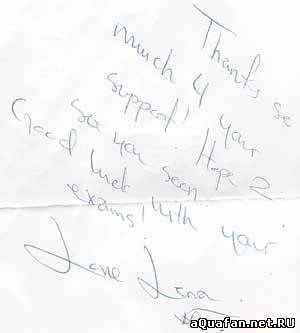 Thanks so
much 4 your
support! Hope 2
see you soon
Good luck with your
exams!
Love Lena
aQuafan.net.RU